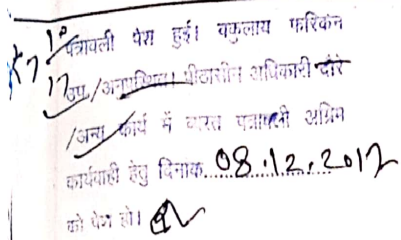 पत्रावली पेश हुई। वकुलाय फरिकेन
उप./अनुपस्थित। पीठासीन अधिकारी दौरे
/अन्य कार्य में व्यस्त पत्रावली अग्रिम
कार्यवाही हेतु दिनांक 08.12.2017
को पेश हो।